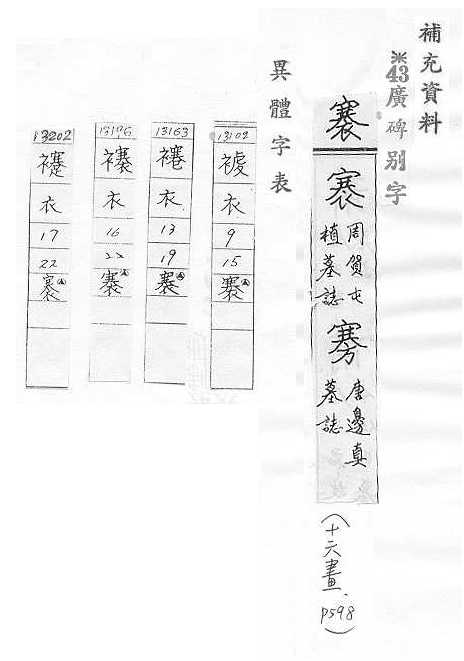 補充資料
※43廣碑別字
褰
周賀屯
植墓誌
唐邊真
墓誌
(十六畫、P598)
異體字表
衣
9
15
褰
13163
衣
13
19
褰
13176
衣
16
22
褰
13202
衣
17
22
褰